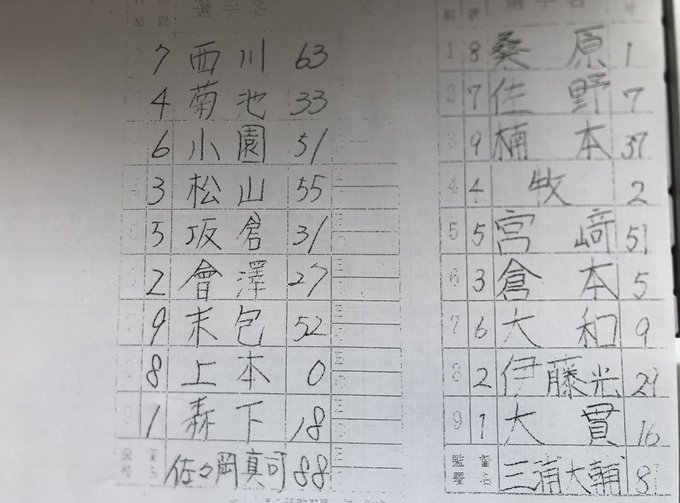 選手名
7 西川 63
4 菊池 33
6 小園 51
3 松山 55
5 坂倉 31
2 會澤 27
9 末包 52
8 上本 0
1 森下 18
監督 署名 佐々岡真司 88
選手名
1 8 桑原 1
2 7 佐野 7
3 9 楠本 37
4 4 牧 2
5 5 宮﨑 51
6 3 倉本 5
7 6 大和 9
8 2 伊藤光 29
9 1 大貫 16
監督 署名 三浦大輔 81